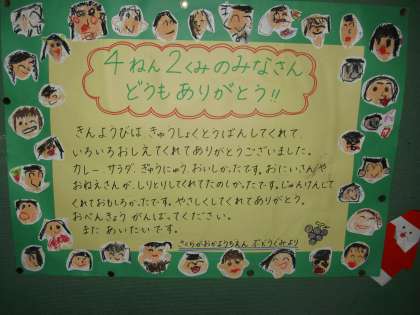 4ねん2くみのみなさん
どうもありがとう!!
きんようびは きゅうしょくとうばんしてくれて、
いろいろおしえてくれてありがとうございました。
カレー、サラダ、ぎゅうにゅう、おいしかったです。おにいさんや
おねえさんが、しりとりしてくれてたのしかったです。じゃんけんして
くれておもしろかったです。やさしくしてくれてありがとう。
おべんきょう がんばってください。
また あいたいです。
さくらがおかようちえん ぶどうぐみより